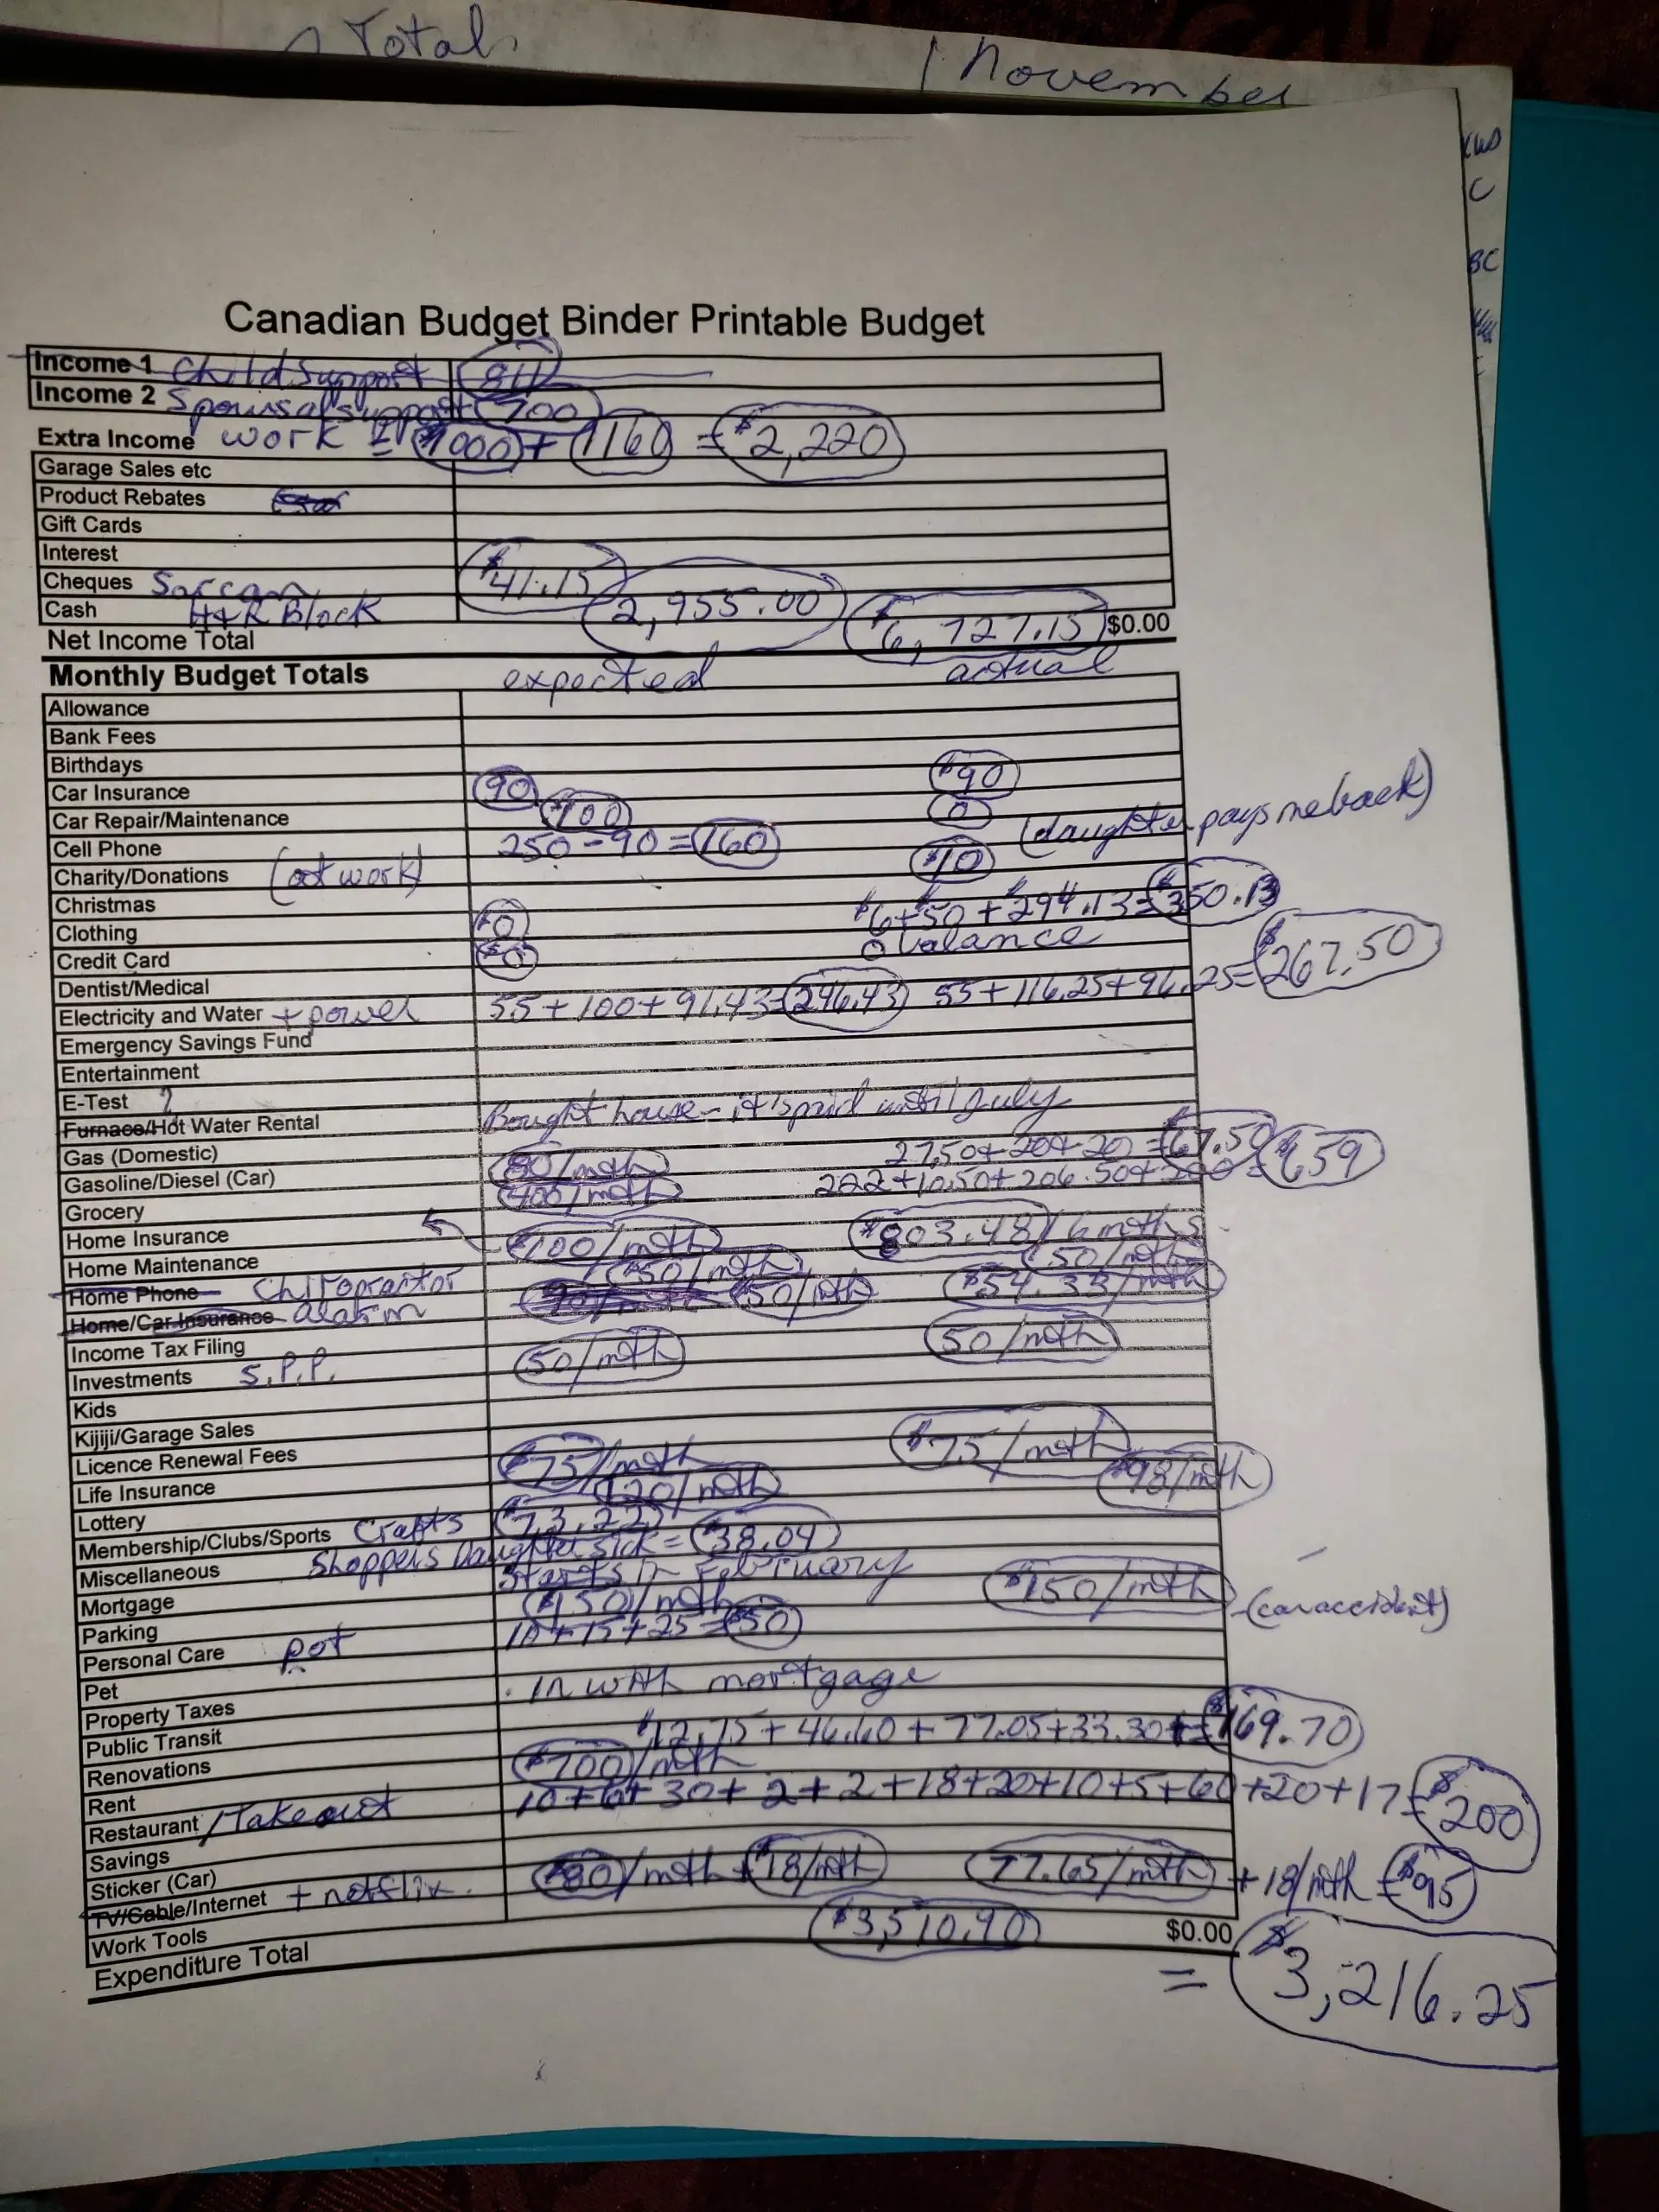 Total
November
BC
Canadian Budget Binder Printable Budget
Income 1 Child Support 811
Income 2 Spousal support 700
Extra Income work = $1000 + 1160 = $2,220
Garage Sales etc
Product Rebates
Gift Cards
Interest
Cheques $41.15
Cash H&R Block 2,955.00
Net Income Total $6,727.15 $0.00
Monthly Budget Totals expected actual
Allowance
Bank Fees
Birthdays
Car Insurance 90 $90
Car Repair/Maintenance $100 0
Cell Phone 250 - 90 = 160 (daughter pays me back)
Charity/Donations (at work) $10
Christmas
Clothing $0 $6 + $50 + $294.13 = $350.13
Credit Card $0 0 balance
Dentist/Medical
Electricity and Water + power 55 + 100 + 91.43 = 246.43 55 + 116.25 + 96.25 = $267.50
Emergency Savings Fund
Entertainment
E-Test ?
Furnace/Hot Water Rental Bought house - it's paid until July
Gas (Domestic)
Gasoline/Diesel (Car) 80/mth 27.50 + 20 + 20 = $67.50
Grocery 400/mth 222 + 10.50 + 206.50 + 220 = $659
Home Insurance $100/mth $803.48/6 mths
Home Maintenance
Home Phone Chiropractor $50/mth 50/mth
Home/Car Insurance alarm 50/mth $54.33/mth
Income Tax Filing
Investments S.P.P. 50/mth 50/mth
Kids
Kijiji/Garage Sales
Licence Renewal Fees
Life Insurance $75/mth $75/mth
Lottery 120/mth $98/mth
Membership/Clubs/Sports Crafts
Miscellaneous Shoppers Daughter sick = $38.04
Mortgage Starts in February
Parking $150/mth $150/mth (car accident)
Personal Care pot 10 + 15 + 25 = $50
Pet
Property Taxes . in with mortgage
Public Transit $12.75 + 46.60 + 77.05 + 33.30 = $169.70
Renovations
Rent $700/mth
Restaurant /Takeout 10 + 6 + 30 + 2 + 2 + 18 + 20 + 10 + 5 + 60 + 20 + 17 = $200
Savings
Sticker (Car)
TV/Cable/Internet + netflix. $80/mth + $18/mth 77.65/mth + 18/mth = $95
Work Tools
Expenditure Total $3,510.90 $0.00
= $3,216.25